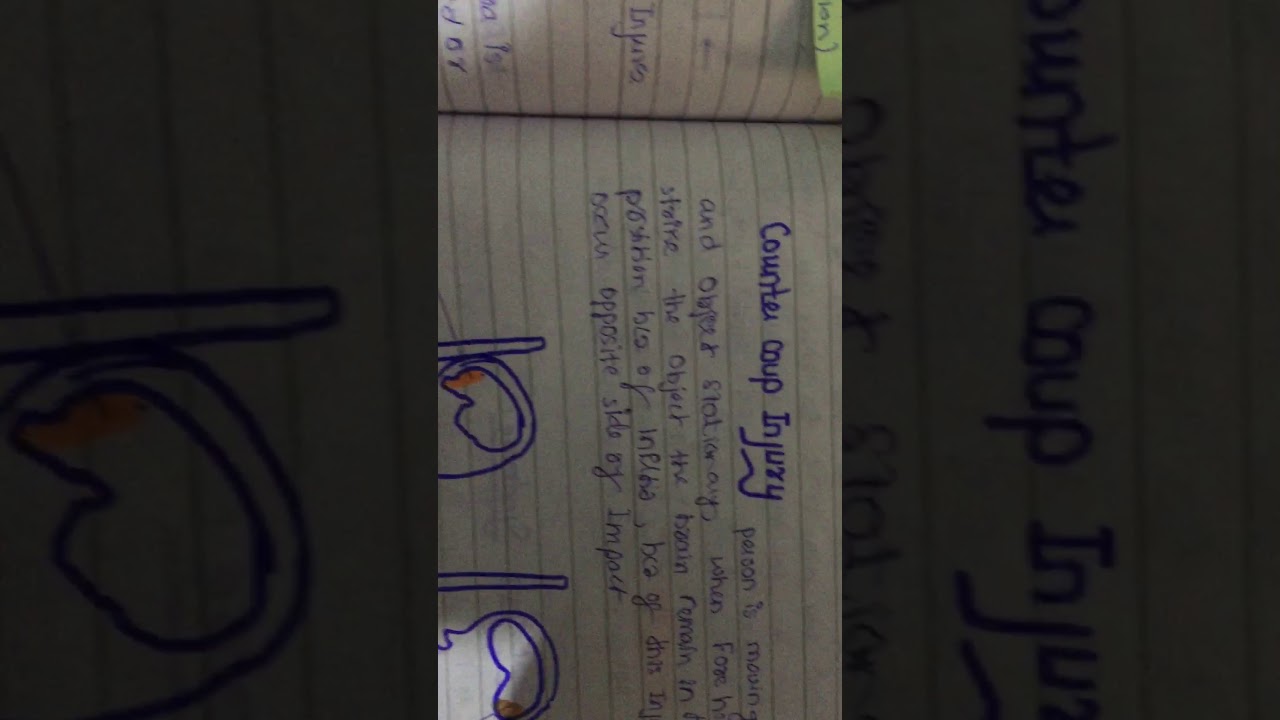 ion)
Injuries
Counter coup Injury
person is moving
and Object stationary, when
strike the object the brain remain in
position bcz of inertia, bcz of this Inj
occur opposite side of Impact